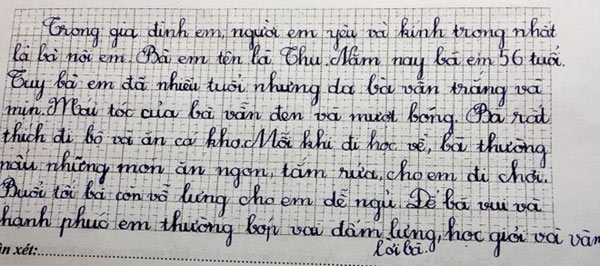 Trong gia đình em, người em yêu và kính trọng nhất
là bà nội em. Bà em tên là Thu. Năm nay bà em 56 tuổi.
Tuy bà em đã nhiều tuổi nhưng da bà vẫn trắng và
mịn. Mái tóc của bà vẫn đen và mượt bóng. Bà rất
thích đi bộ và ăn cá kho. Mỗi khi đi học về, bà thường
nấu những món ăn ngon, tắm rửa, cho em đi chơi.
Buổi tối bà còn vỗ lưng cho em dễ ngủ. Để bà vui và
hạnh phúc em thường bóp vai đấm lưng, học giỏi và vân
lời bà.
ận xét: